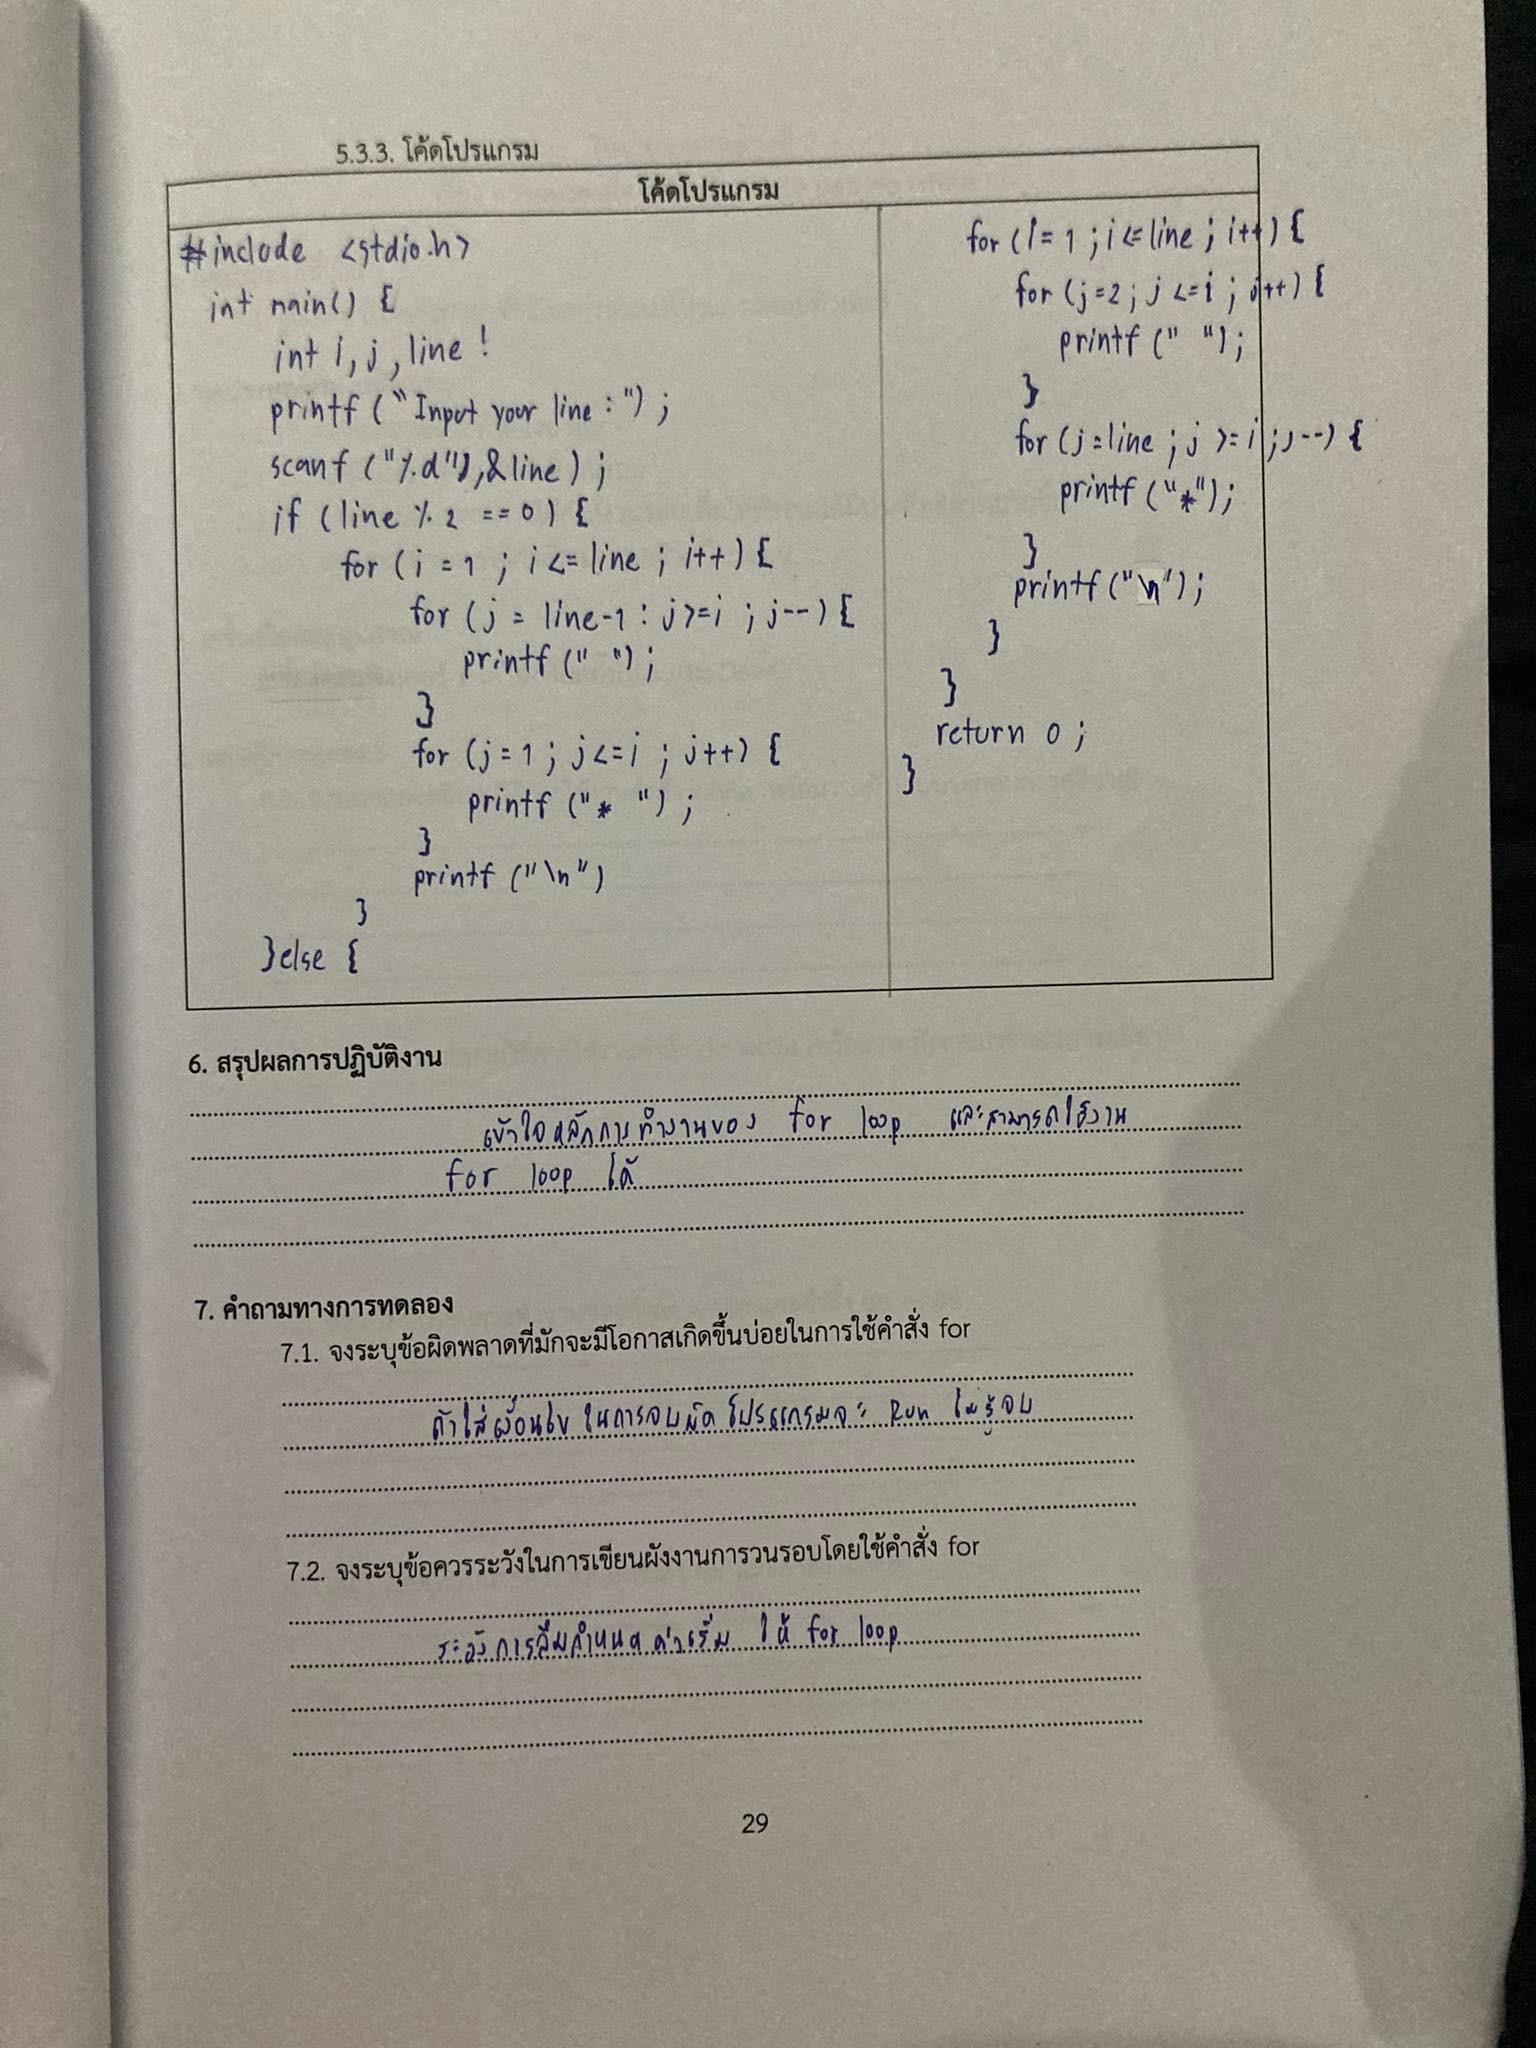 5.3.3. โค้ดโปรแกรม
โค้ดโปรแกรม
#include <stdio.h>
int main() {
int i, j , line !
printf ("Input your line : ") ;
scanf ("%d"),&line) ;
if (line % 2 == 0) {
for (i = 1 ; i <= line ; i++) {
for (j = line-1 : j>=i ; j--) {
printf (" ") ;
}
for (j = 1 ; j<=i ; j++) {
printf ("* ") ;
}
printf ("\n")
}
}else {
for (i= 1 ; i<=line ; i++) {
for (j=2 ; j <=i ; j++) {
printf (" ") ;
}
for (j=line ; j >= i ; j--) {
printf ("*");
}
printf ("\n");
}
}
return 0 ;
}
6. สรุปผลการปฏิบัติงาน
เข้าใจหลักการทำงานของ for loop และสามารถใช้งาน
for loop ได้
7. คำถามทางการทดลอง
7.1. จงระบุข้อผิดพลาดที่มักจะมีโอกาสเกิดขึ้นบ่อยในการใช้คำสั่ง for
ถ้าใส่เงื่อนไข ในการจบผิด โปรแกรมจะ Run ไม่รู้จบ
7.2. จงระบุข้อควรระวังในการเขียนผังงานการวนรอบโดยใช้คำสั่ง for
ระวังการลืมกำหนดค่าเริ่ม ให้ for loop
29